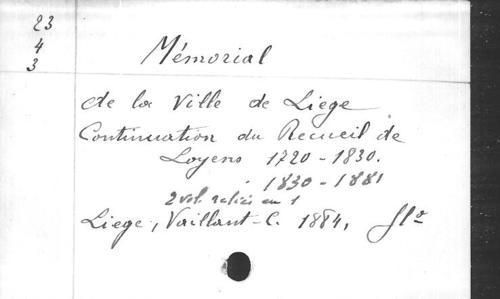 23
4
3
Mémorial
de la Ville de Liege
Continuation du Recueil de
Loyens 1720 - 1830.
. 1830 - 1881
2 vol. reliés en 1
Liege, Vaillant-C. 1884, fº